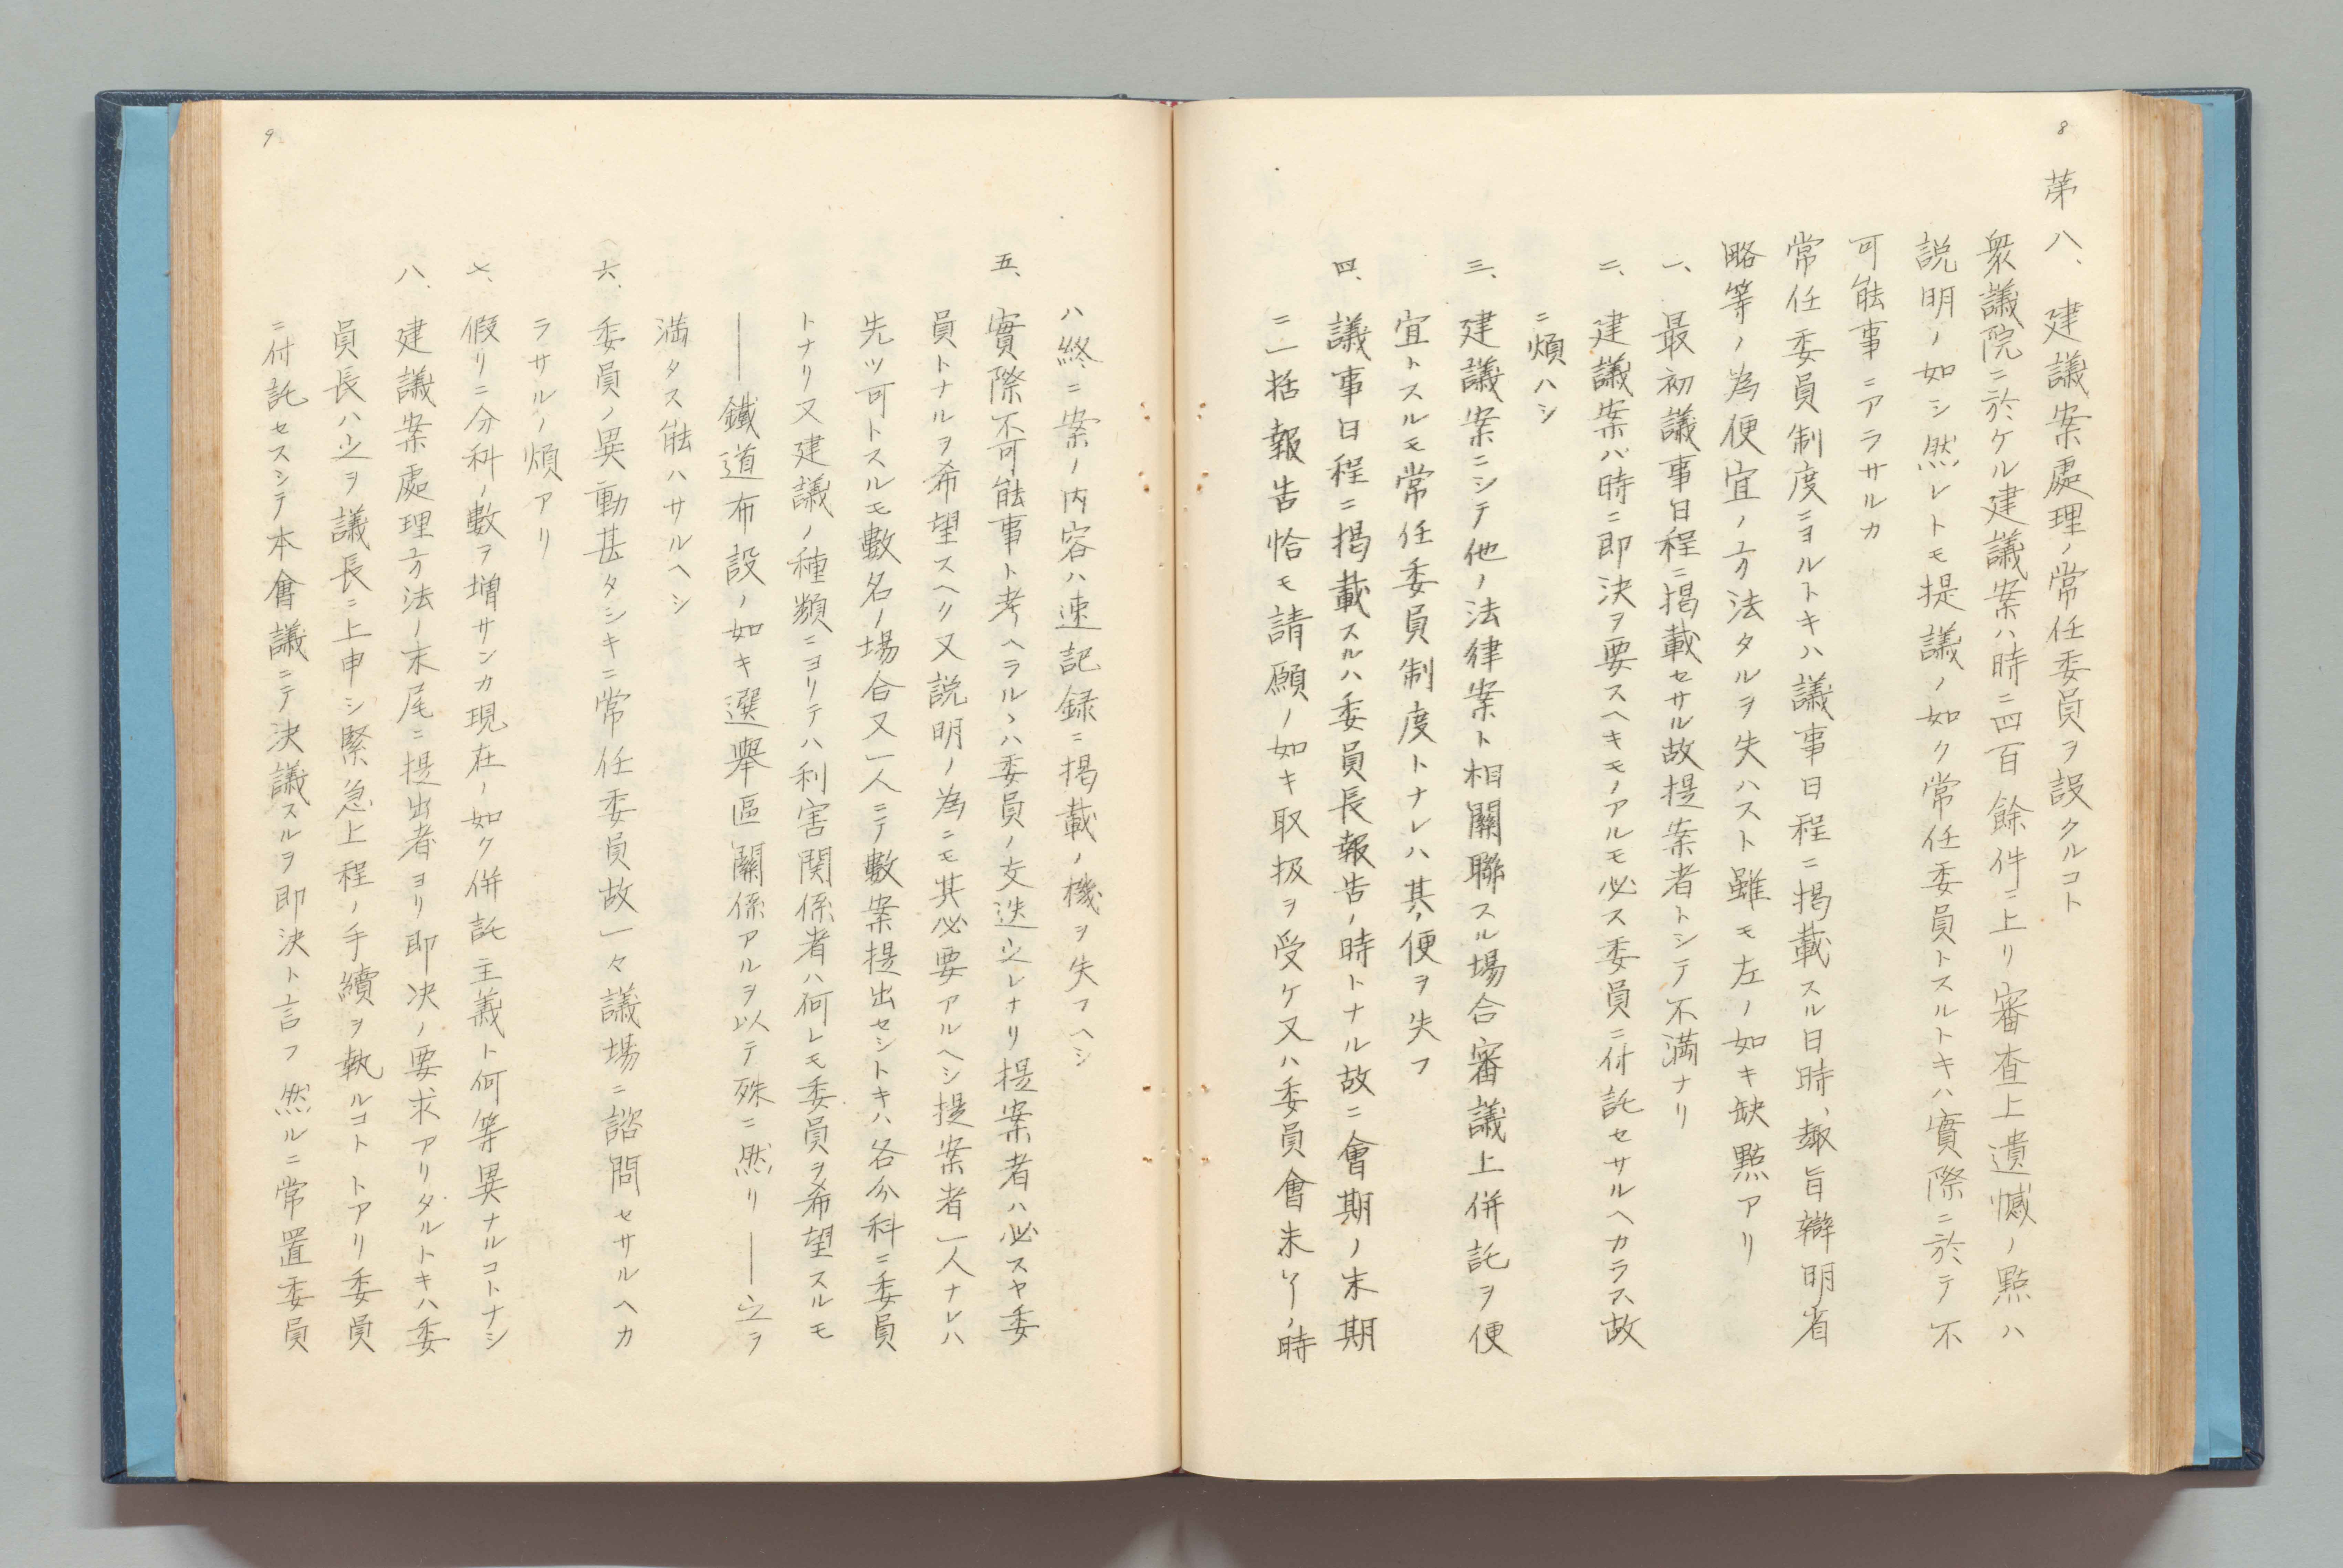 8
第八、建議案處理ノ常任委員ヲ設クルコト
衆議院ニ於ケル建議案ハ時ニ四百餘件ニ上リ審査上遺憾ノ點ハ
説明ノ如シ然レトモ提議ノ如ク常任委員トスルトキハ實際ニ於テ不
可能事ニアラサルカ
常任委員制度ニヨルトキハ議事日程ニ掲載スル日時、趣旨辯明省
略等ノ為便宜ノ方法タルヲ失ハスト雖モ左ノ如キ缺點アリ
一、最初議事日程ニ掲載セサル故提案者トシテ不満ナリ
二、建議案ハ時ニ即決ヲ要スヘキモノアルモ必ス委員ニ付託セサルヘカラス故
ニ煩ハシ
三、建議案ニシテ他ノ法律案ト相關聯スル場合審議上併託ヲ便
宜トスルモ常任委員制度トナレハ其ノ便ヲ失フ
四、議事日程ニ掲載スルハ委員長報告ノ時トナル故ニ會期ノ末期
ニ一括報告恰モ請願ノ如キ取扱ヲ受ケ又ハ委員會未了ノ時
9
ハ終ニ案ノ内容ハ速記録ニ掲載ノ機ヲ失フヘシ
五、實際不可能事ト考ヘラルヽハ委員ノ交迭之レナリ提案者ハ必スヤ委
員トナルヲ希望スヘク又説明ノ為ニモ其必要アルヘシ提案者一人ナレハ
先ツ可トスルモ數名ノ場合又一人ニテ數案提出セシトキハ各分科ニ委員
トナリ又建議ノ種類ニヨリテハ利害関係者ハ何レモ委員ヲ希望スルモ
――鐵道布設ノ如キ選擧區關係アルヲ以テ殊ニ然リ――之ヲ
満タス能ハサルヘシ
六、委員ノ異動甚タシキニ常任委員故一々議場ニ諮問セサルヘカ
ラサルノ煩アリ
七、假リニ分科ノ數ヲ増サンカ現在ノ如ク併託主義ト何等異ナルコトナシ
八、建議案處理方法ノ末尾ニ提出者ヨリ即決ノ要求アリタルトキハ委
員長ハ之ヲ議長ニ上申シ緊急上程ノ手續ヲ執ルコトトアリ委員
ニ付託セスシテ本會議ニテ決議スルヲ即決ト言フ然ルニ常置委員